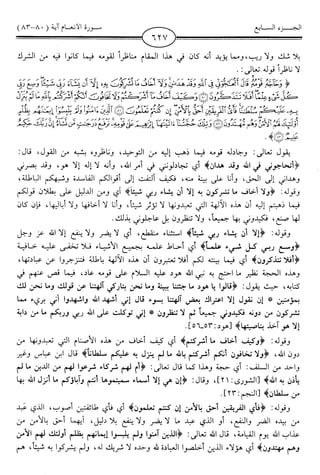 الجـزء السـابع
٦٢٧
سـورة الأنـعـام آية (٨٠-٨٣)
بلا شك ولا ريب، ومما يؤيد أنه كان في هذا المقام مناظراً لقومه فيما كانوا فيه من الشرك
لا ناظراً قوله تعالى:
﴿ وَحَاجَّهُ قَوْمُهُ قَالَ أَتُحَاجُّونِّي فِي اللَّهِ وَقَدْ هَدَانِ وَلَا أَخَافُ مَا تُشْرِكُونَ بِهِ إِلَّا أَنْ يَشَاءَ رَبِّي شَيْئًا وَسِعَ رَبِّي
كُلَّ شَيْءٍ عِلْمًا أَفَلَا تَتَذَكَّرُونَ ۝ وَكَيْفَ أَخَافُ مَا أَشْرَكْتُمْ وَلَا تَخَافُونَ أَنَّكُمْ أَشْرَكْتُمْ بِاللَّهِ مَا لَمْ يُنَزِّلْ بِهِ
عَلَيْكُمْ سُلْطَانًا فَأَيُّ الْفَرِيقَيْنِ أَحَقُّ بِالْأَمْنِ إِنْ كُنْتُمْ تَعْلَمُونَ ۝ الَّذِينَ آمَنُوا وَلَمْ يَلْبِسُوا إِيمَانَهُمْ بِظُلْمٍ
أُولَئِكَ لَهُمُ الْأَمْنُ وَهُمْ مُهْتَدُونَ ۝ وَتِلْكَ حُجَّتُنَا آتَيْنَاهَا إِبْرَاهِيمَ عَلَى قَوْمِهِ نَرْفَعُ دَرَجَاتٍ مَنْ نَشَاءُ إِنَّ رَبَّكَ حَكِيمٌ
عَلِيمٌ ۝ ﴾
يقول تعالى: وجادله قومه فيما ذهب إليه من التوحيد، وناظروه بشبه من القول، قال:
﴿أتحاجوني في الله وقد هدان﴾ أي تجادلونني في أمر الله، وأنه لا إله إلا هو، وقد بصرني
وهداني إلى الحق، وأنا على بينة منه، فكيف ألتفت إلى أقوالكم الفاسدة وشبهكم الباطلة،
وقوله: ﴿ولا أخاف ما تشركون به إلا أن يشاء ربي شيئاً﴾ أي ومن الدليل على بطلان قولكم
فيما ذهبتم إليه أن هذه الآلهة التي تعبدونها لا تؤثر شيئاً، وأنا لا أخافها ولا أباليها، فإن كان
لها صنع، فكيدوني بها جميعاً، ولا تنظرون بل عاجلوني بذلك.
وقوله: ﴿إلا أن يشاء ربي شيئاً﴾ استثناء منقطع، أي لا يضر ولا ينفع إلا الله عز وجل
﴿وسع ربي كـل شيء علماً﴾ أي أحـاط علمـه بجميـع الأشيـاء فـلا تخفـى عليـه خـافيـة
﴿أفلا تتذكرون﴾ أي فيما بينته لكم أفلا تعتبرون أن هذه الآلهة باطلة فتنزجروا عن عبادتها،
وهذه الحجة نظير ما احتج به نبي الله هود عليه السلام على قومه عاد، فيما قص عنهم في
كتابه، حيث يقول: ﴿قالوا يا هود ما جئتنا ببينة وما نحن بتاركي آلهتنا عن قولك وما نحن لك
بمؤمنين * إن نقول إلا اعتراك بعض آلهتنا بسوء قال إني أشهد الله واشهدوا أني بريء مما
تشركون من دونه فكيدوني جميعاً ثم لا تنظرون * إني توكلت على الله ربي وربكم ما من دابة
إلا هو آخذ بناصيتها﴾ [هود: ٥٣-٥٦].
وقوله: ﴿وكيف أخاف ما أشركتم﴾ أي كيف أخاف من هذه الأصنام التي تعبدونها من
دون الله، ﴿ولا تخافون أنكم أشركتم بالله ما لم ينزل به عليكم سلطاناً﴾ قال ابن عباس وغير
واحد من السلف: أي حجة وهذا كما قال تعالى: ﴿أم لهم شركاء شرعوا لهم من الدين ما لم
يأذن به الله﴾ [الشورى: ٢١]، وقال: ﴿إن هي إلا أسماء سميتموها أنتم وآباؤكم ما أنزل الله بها
من سلطان﴾ [النجم: ٢٣].
وقوله: ﴿فأي الفريقين أحق بالأمن إن كنتم تعلمون﴾ أي فأي طائفتين أصوب، الذي عبد
من بيده الضر والنفع، أو الذي عبد ما لا يضر ولا ينفع بلا دليل، أيهما أحق بالأمن من
عذاب الله يوم القيامة، قال الله تعالى: ﴿الذين آمنوا ولم يلبسوا إيمانهم بظلم أولئك لهم الأمن
وهم مهتدون﴾ أي هؤلاء الذين أخلصوا العبادة لله وحده لا شريك له، ولم يشركوا به شيئاً، هم